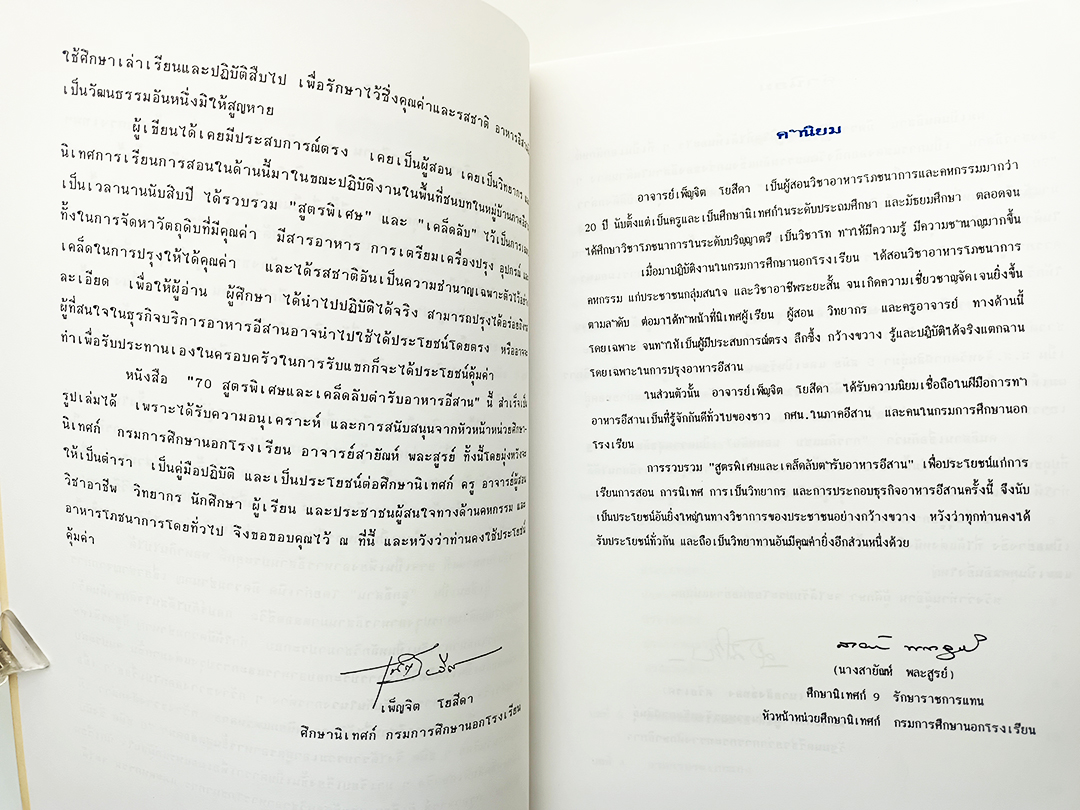 ใช้ศึกษาเล่าเรียนและปฏิบัติสืบไป เพื่อรักษาไว้ซึ่งคุณค่าและรสชาติ อาหารอีสาน
เป็นวัฒนธรรมอันหนึ่งมิให้สูญหาย
ผู้เขียนได้เคยมีประสบการณ์ตรง เคยเป็นผู้สอน เคยเป็นวิทยากร
นิเทศการเรียนการสอนในด้านนี้มาในขณะปฏิบัติงานในพื้นที่ชนบทในหมู่บ้านภาคอีสาน
เป็นเวลานานนับสิบปี ได้รวบรวม "สูตรพิเศษ" และ "เคล็ดลับ" ไว้เป็นการ
ทั้งในการจัดหาวัตถุดิบที่มีคุณค่า มีสารอาหาร การเตรียมเครื่องปรุง อุปกรณ์
เคล็ดในการปรุงให้ได้คุณค่า และได้รสชาติอันเป็นความชำนาญเฉพาะตัวไว้
ละเอียด เพื่อให้ผู้อ่าน ผู้ศึกษา ได้นำไปปฏิบัติได้จริง สามารถปรุงได้อร่อย
ผู้ที่สนใจในธุรกิจบริการอาหารอีสานอาจนำไปใช้ได้ประโยชน์โดยตรง หรืออาจจะ
ทำเพื่อรับประทานเองในครอบครัวในการรับแขกก็จะได้ประโยชน์คุ้มค่า
หนังสือ "70 สูตรพิเศษและเคล็ดลับตำรับอาหารอีสาน" นี้ สำเร็จเป็น
รูปเล่มได้ เพราะได้รับความอนุเคราะห์ และการสนับสนุนจากหัวหน้าหน่วยศึกษา-
นิเทศก์ กรมการศึกษานอกโรงเรียน อาจารย์สายัณห์ พละสูรย์ ทั้งนี้โดยมุ่งหวังจะ
ให้เป็นตำรา เป็นคู่มือปฏิบัติ และเป็นประโยชน์ต่อศึกษานิเทศก์ ครู อาจารย์ผู้สอน
วิชาอาชีพ วิทยากร นักศึกษา ผู้เรียน และประชาชนผู้สนใจทางด้านคหกรรม และ
อาหารโภชนาการโดยทั่วไป จึงขอขอบคุณไว้ ณ ที่นี้ และหวังว่าท่านคงใช้ประโยชน์
คุ้มค่า
เพ็ญจิต โยสีดา
ศึกษานิเทศก์ กรมการศึกษานอกโรงเรียน
คำนิยม
อาจารย์เพ็ญจิต โยสีดา เป็นผู้สอนวิชาอาหารโภชนาการและคหกรรมมากว่า
20 ปี นับตั้งแต่เป็นครูและเป็นศึกษานิเทศก์ในระดับประถมศึกษา และมัธยมศึกษา ตลอดจน
ได้ศึกษาวิชาโภชนาการในระดับปริญญาตรี เป็นวิชาโท ทำให้มีความรู้ มีความชำนาญมากขึ้น
เมื่อมาปฏิบัติงานในกรมการศึกษานอกโรงเรียน ได้สอนวิชาอาหารโภชนาการ
คหกรรม แก่ประชาชนกลุ่มสนใจ และวิชาอาชีพระยะสั้น จนเกิดความเชี่ยวชาญจัดเจนยิ่งขึ้น
ตามลำดับ ต่อมาได้ทำหน้าที่นิเทศผู้เรียน ผู้สอน วิทยากร และครูอาจารย์ ทางด้านนี้
โดยเฉพาะ จนทำให้เป็นผู้มีประสบการณ์ตรง ลึกซึ้ง กว้างขวาง รู้และปฏิบัติได้จริงแตกฉาน
โดยเฉพาะในการปรุงอาหารอีสาน
ในส่วนตัวนั้น อาจารย์เพ็ญจิต โยสีดา ได้รับความนิยมเชื่อถือในฝีมือการทำ
อาหารอีสานเป็นที่รู้จักกันดีทั่วไปของชาว กศน.ในภาคอีสาน และคนในกรมการศึกษานอก
โรงเรียน
การรวบรวม "สูตรพิเศษและเคล็ดลับตำรับอาหารอีสาน" เพื่อประโยชน์แก่การ
เรียนการสอน การนิเทศ การเป็นวิทยากร และการประกอบธุรกิจอาหารอีสานครั้งนี้ จึงนับ
เป็นประโยชน์อันยิ่งใหญ่ในทางวิชาการของประชาชนอย่างกว้างขวาง หวังว่าทุกท่านคงได้
รับประโยชน์ทั่วกัน และถือเป็นวิทยาทานอันมีคุณค่ายิ่งอีกส่วนหนึ่งด้วย
(นางสายัณห์ พละสูรย์)
ศึกษานิเทศก์ 9 รักษาราชการแทน
หัวหน้าหน่วยศึกษานิเทศก์ กรมการศึกษานอกโรงเรียน